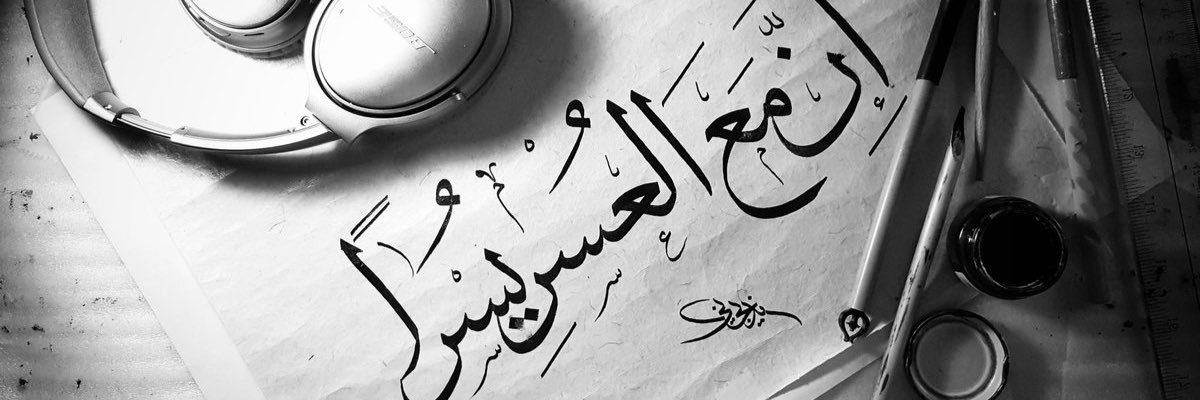 إِنَّ مَعَ الْعُسْرِ يُسْرًا
BOSE